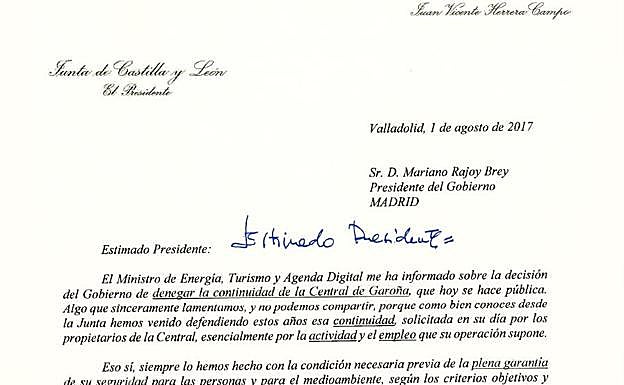 Juan Vicente Herrera Campo
Junta de Castilla y León
El Presidente
Valladolid, 1 de agosto de 2017
Sr. D. Mariano Rajoy Brey
Presidente del Gobierno
MADRID
Estimado Presidente: Estimado Presidente=
El Ministro de Energía, Turismo y Agenda Digital me ha informado sobre la decisión
del Gobierno de denegar la continuidad de la Central de Garoña, que hoy se hace pública.
Algo que sinceramente lamentamos, y no podemos compartir, porque como bien conoces desde
la Junta hemos venido defendiendo estos años esa continuidad, solicitada en su día por los
propietarios de la Central, esencialmente por la actividad y el empleo que su operación supone.
Eso sí, siempre lo hemos hecho con la condición necesaria previa de la plena garantía
de su seguridad para las personas y para el medioambiente, según los criterios objetivos y